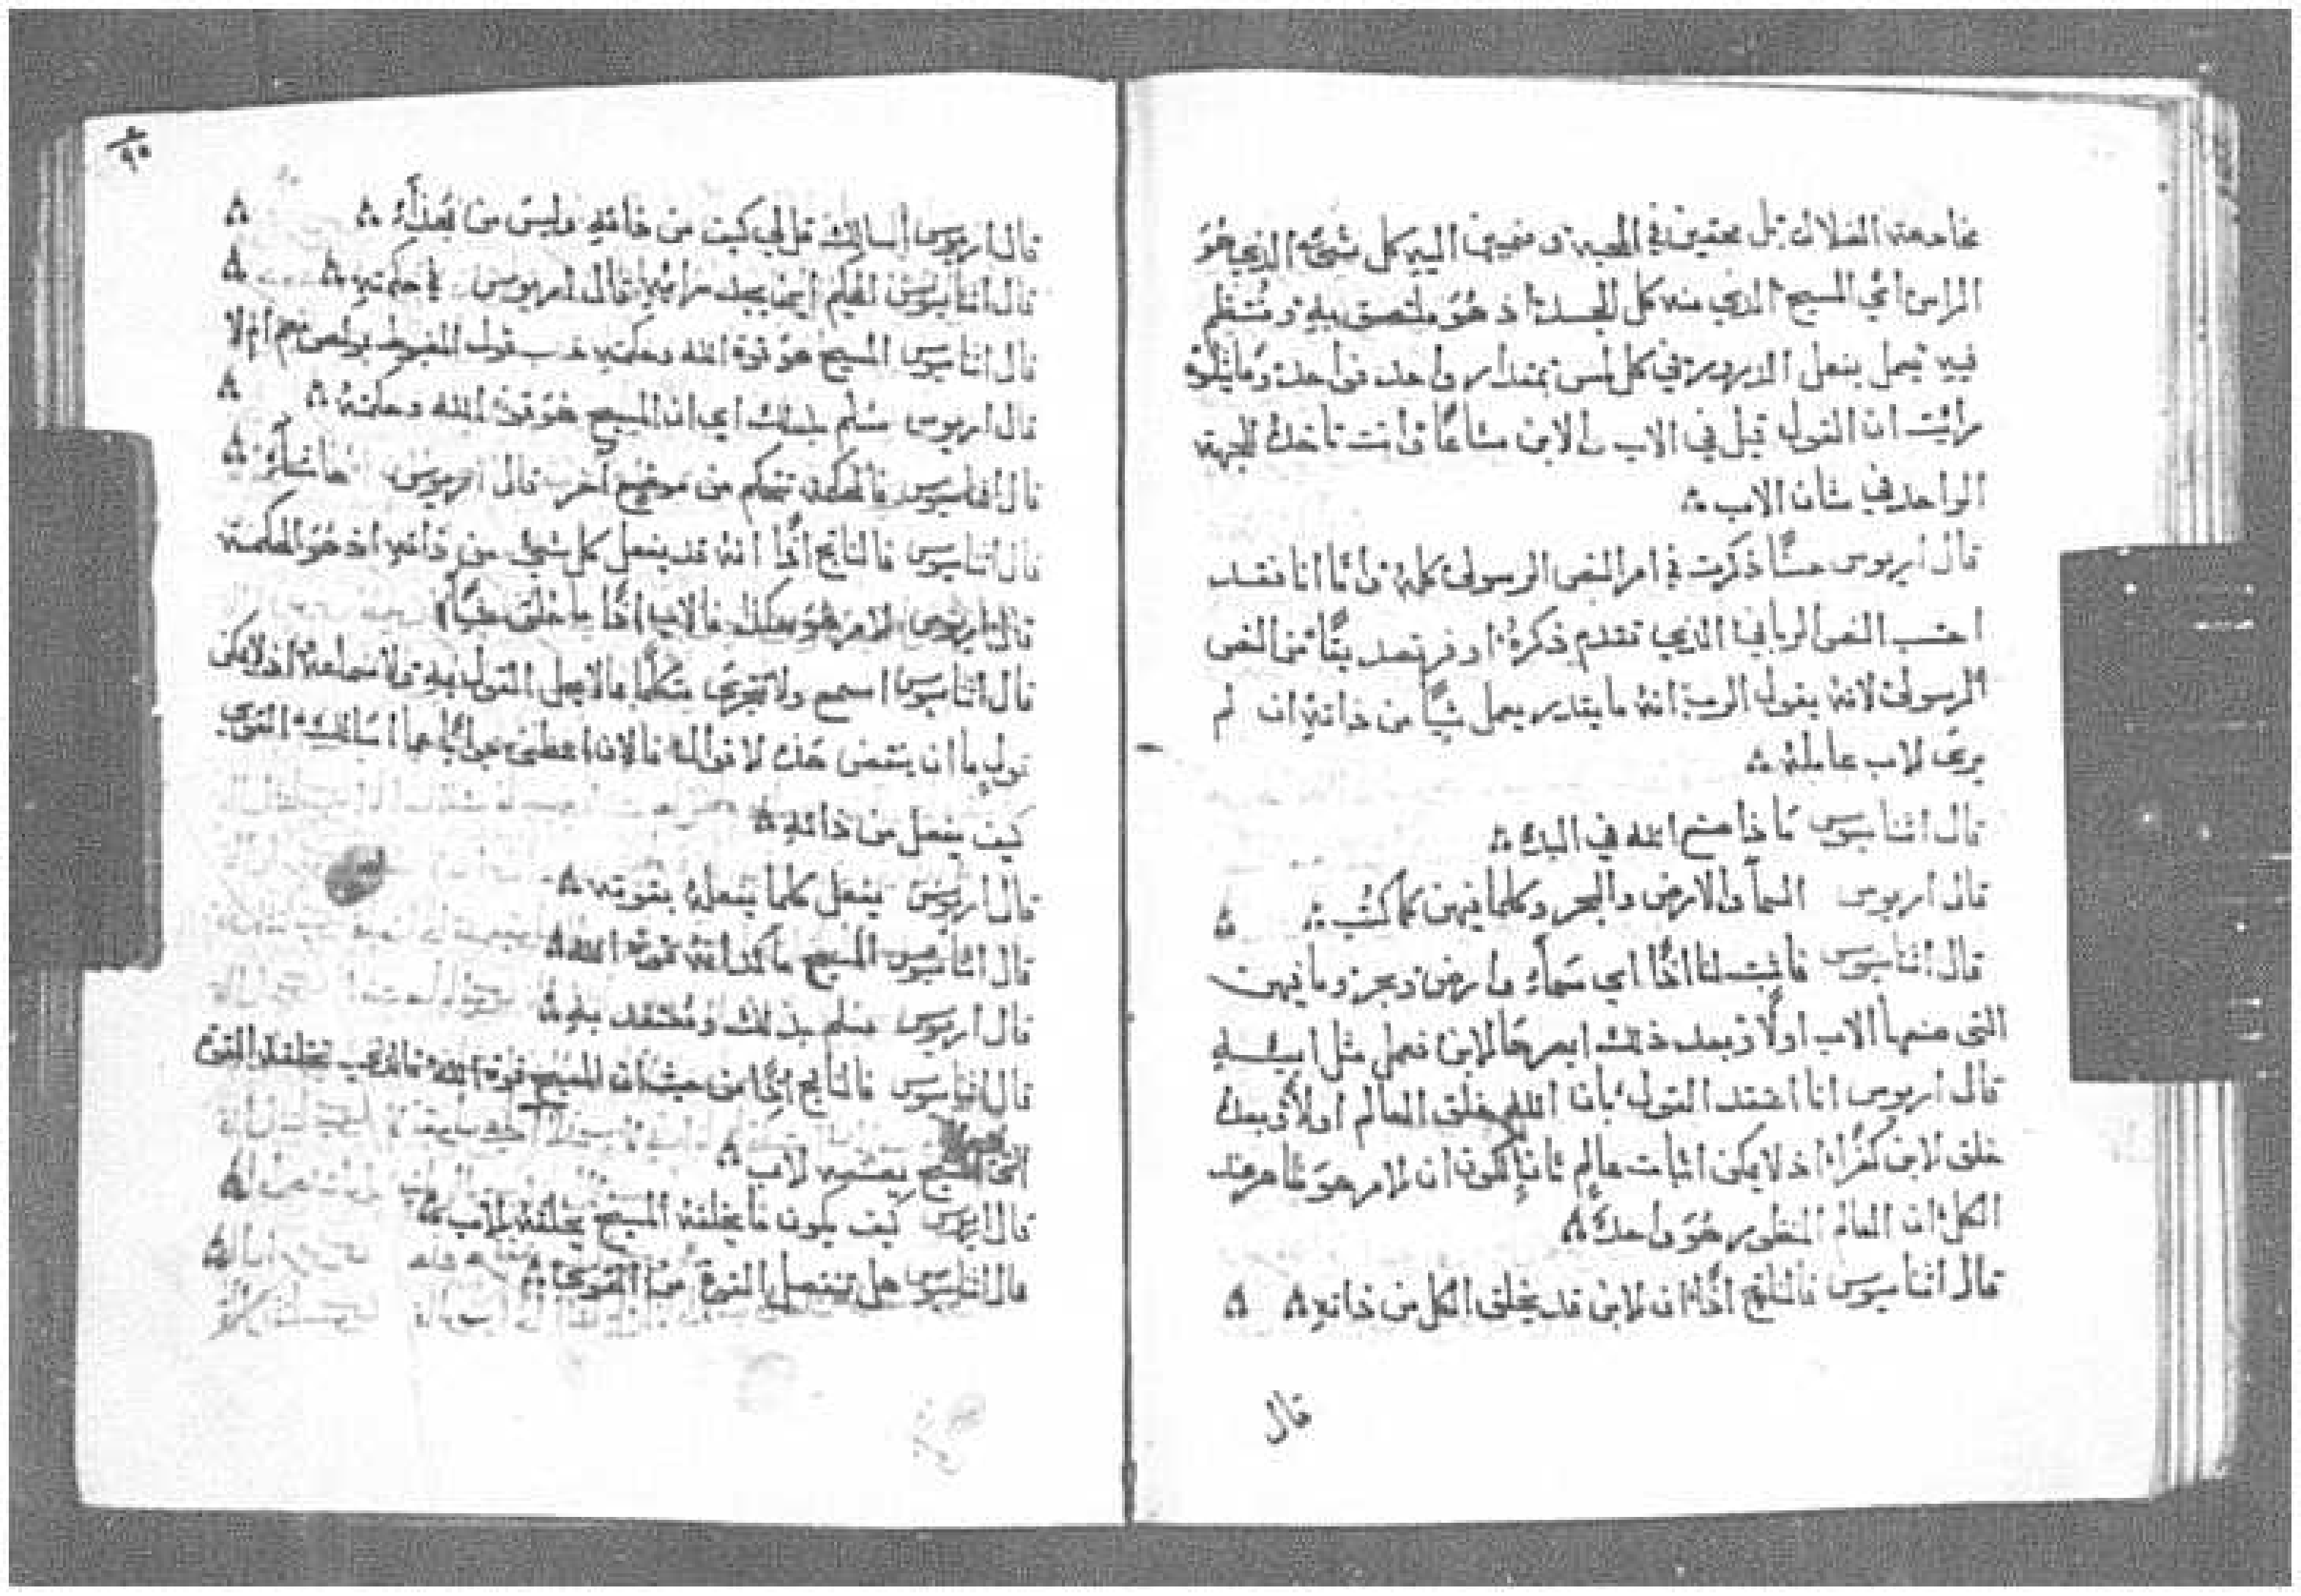 مخادعة الضلالة بل محقين في المحبة ومنميين اليه كل شيء الذي هو
الراس اعني المسيح الذي منه كل الجسد اذ هو ملتصق به ومنتظم
فيه يعمل بفعل في كل لمس بمقدار واحد فواحد
رايت ان القول قيل في الاب والابن مشاعًا وانت تاخذه للجهة
الواحده في شان الاب
قال اريوس حسنًا ذكرت في امر النص الرسولي كله واما انا فقد
احتسب النص الرباني الذي تقدم ذكره اوفر تصديقًا من النص
الرسولي لانه يقول الرب انه ما يقدر يعمل شيًا من ذاته ان لم
يرى الاب عامله
قال اثناسيوس ماذا صنع الله في البدء
قال اريوس السما والارض والبحر وكلما فيهن كما كتب
قال اثناسيوس فاثبت لنا اذًا اي سماء وارض وبحر وما فيهن
التي صنعها الاب اولًا وبعد ذلك ابصرها الابن فعمل مثل ابيه
قال اريوس انا اعتقد القول بان الله خلق العالم اولًا وبعده
خلق الابن كفرًا اذ لا يمكن اثبات عالم ثاني لكون ان الامر هو ظاهر عند
الكل ان العالم المنظور هو واحد
قال اثناسيوس فالناتج اذًا ان الابن قد يخلق الكل من ذاته
قال
٩٥
قال اريوس اسالك قل لي كيف من ذاته وليس من
قال اثناسيوس الحكيم اين يجد رائيه قال اريوس في حكمته
قال اثناسيوس المسيح هو قوة الله وحكمته حسب قول المغبوط بولص نعم ام لا
قال اريوس مسلم بذلك اي ان المسيح هو قوة الله وحكمته
قال اثناسيوس فالحكمة تتحكم من موضع آخر قال اريوس حاشا
قال اثناسيوس فالناتج اذًا انه قد يفعل كل شي من ذاته اذ هو الحكمة
قال اريوس الامر هو هكذا فالاب اذًا ما خلق شيًا
قال اثناسيوس اسمع ولا تتجرى متكلمًا بما لا يجمل القول به ولا سماعه اذ لا يمكن
قولي ما ان ينقض هذه الاقوال فالان اعطني جوابًا عما اسالك القوي
كيف يفعل من ذاته
قال اريوس يفعل كلما يفعله بقوته
قال اثناسيوس المسيح ما كذا انه قوة الله
قال اريوس مسلم بذلك ومعتقد به
قال اثناسيوس فالناتج اذًا من حيث ان المسيح قوة الله فالذي تخلقه القوة
التي المسيح يصنعه الاب
قال اريوس كيف يكون ما يخلقه المسيح يخلقه الاب
قال اثناسيوس هل تنفصل القوة من القوي